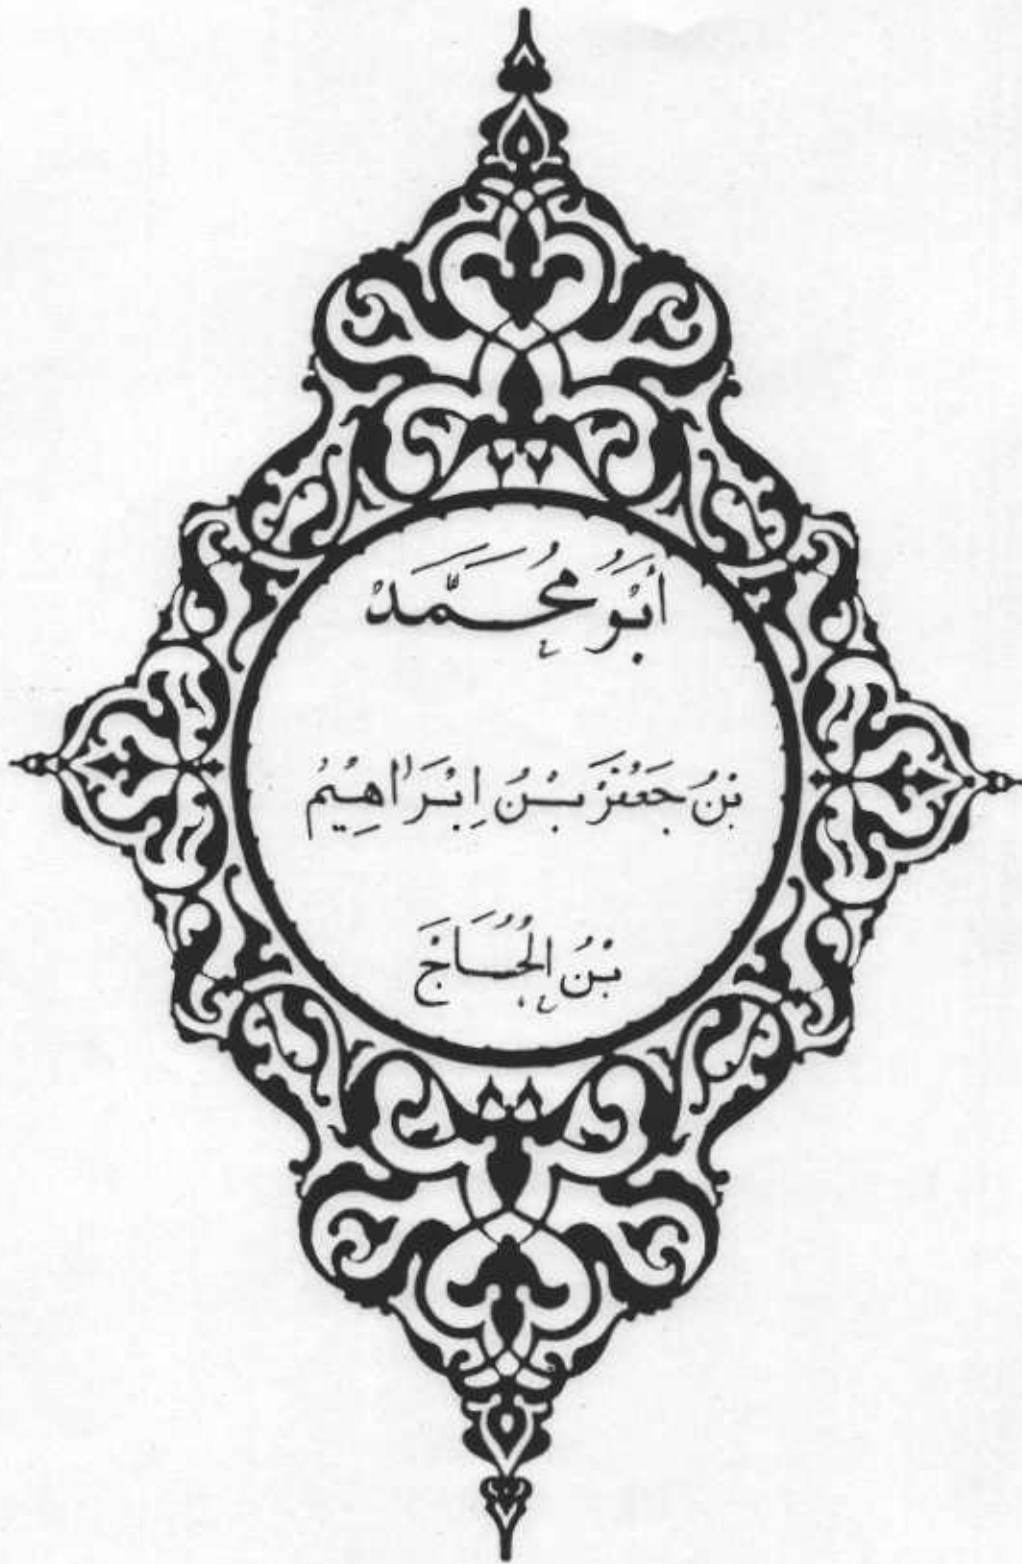 أَبُو مُحَمَّد
بْنُ جَعْفَرَ بْنُ اِبْرَاهِيْمُ
بْنُ الْحُجَاجَ